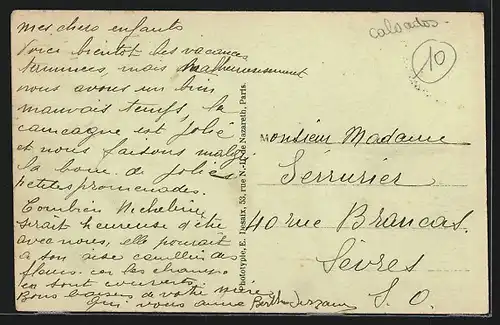 Mes chers enfants
Voici bientôt les vacances
terminées, mais malheureusement
nous avons un bien
mauvais temps, la
campagne est jolie
et nous faisons malgré
la boue de jolies
petites promenades.
Combien Micheline
serait heureuse d'être
avec nous, elle pourrait
à son aise cueillir des
fleurs car les champs
en sont couverts.
Bons baisers de votre mère
qui vous aime Berthe
Phototypie, E. Desaix, 53, rue N.-D. de Nazareth, Paris.
calvados
10
Monsieur Madame
Serrurier
40 rue Brancas
Sèvres
S. O.